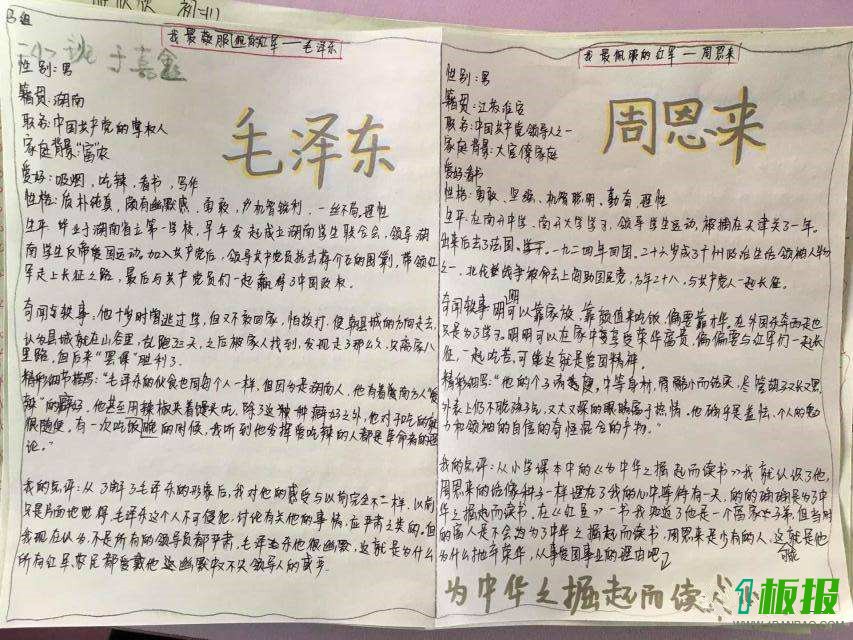 我最敬服的红军——毛泽东
性别:男
籍贯:湖南
职务:中国共产党的掌权人
家庭背景:"富农"
爱好:吸烟,吃辣,看书,写作
毛泽东
生平 毕业于湖南省立第一学校,早年发起成立湖南学生联合会,领导湖
南学生反帝爱国运动,加入共产党后,领导共产党员抗击蒋介石的围剿,带领红
军走上长征之路,最后与共产党员们一起赢得了中国政权。
奇闻与轶事:他十岁时曾逃过学,但又不敢回家,怕挨打,便朝县城的方向走去,
认为县城就在山谷里,乱跑了三天,之后被家人找到,发现走了那么久,只离家八
里路,但后来"罢课"胜利了。
精彩细节描写:"毛泽东的伙食也同每个人一样,但因为是湖南人,他有着南方人"爱
辣"的癖好,他甚至用辣椒夹着馒头吃,除了这种癖好之外,他对于吃的东西
很随便,有一次吃饭的时候,我听到他发挥爱吃辣的人都是革命者的理
论。"
我的点评:从了解了毛泽东的形象后,我对他的感受与以前完全不一样,以前
只是片面地觉得毛泽东这个人不可侵犯,讨论有关他的事情,应严肃之类的,但
我现在认为,不是所有的领导员都严肃,毛泽东他很幽默,这就是为什么
所有红军、农民都爱戴他这幽默却不失领导人的
我最佩服的红军——周恩来
性别:男
籍贯:江苏淮安
职务:中国共产党领导人之一
家庭背景:大官僚家庭
爱好看书
性格:勇敢、坚强、机智聪明、勤奋、理性
周恩来
生平:在南开中学,南开大学学习,领导学生运动,被捕在天津关了一年。
出来后去了法国,一九二四年回国,二十六岁成了广州政治生活领袖人物
之一,北伐战争被命去上海助国民党,当年二十八,与共产党人一起长征。
奇闻轶事 明明可以靠家族,靠颜值来吃饭,偏要靠才华。在外国
只是为了学习。明明可以在家中尊享受荣华富贵,偏偏要与红军们一起长
征,一起吃苦,可能这就是爱国精神。
外表上仍不脱孩子气,又大又深的眼睛富于热情。他确乎是羞怯、个人的魅
力和领袖的自信的奇怪混合的产物。"
我的点评:从小学课本中的《为中华之崛起而读书》我就认识了他,
周恩来的话像种子一样埋在了我的心中等待有一天,的的确确是为了中
华之崛起而读书,在《红星》一书我知道了他是一个富家子弟,但当时
的富人是不会为了中华之崛起而读书,周恩来是少有的人,这就是他
为什么抛弃荣华,从事爱国事业的理由吧
为中华之崛起而读
板报